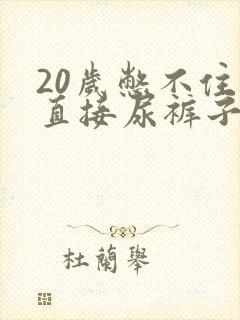 20歲憋不住
直接尿裤子
杜蘭舉